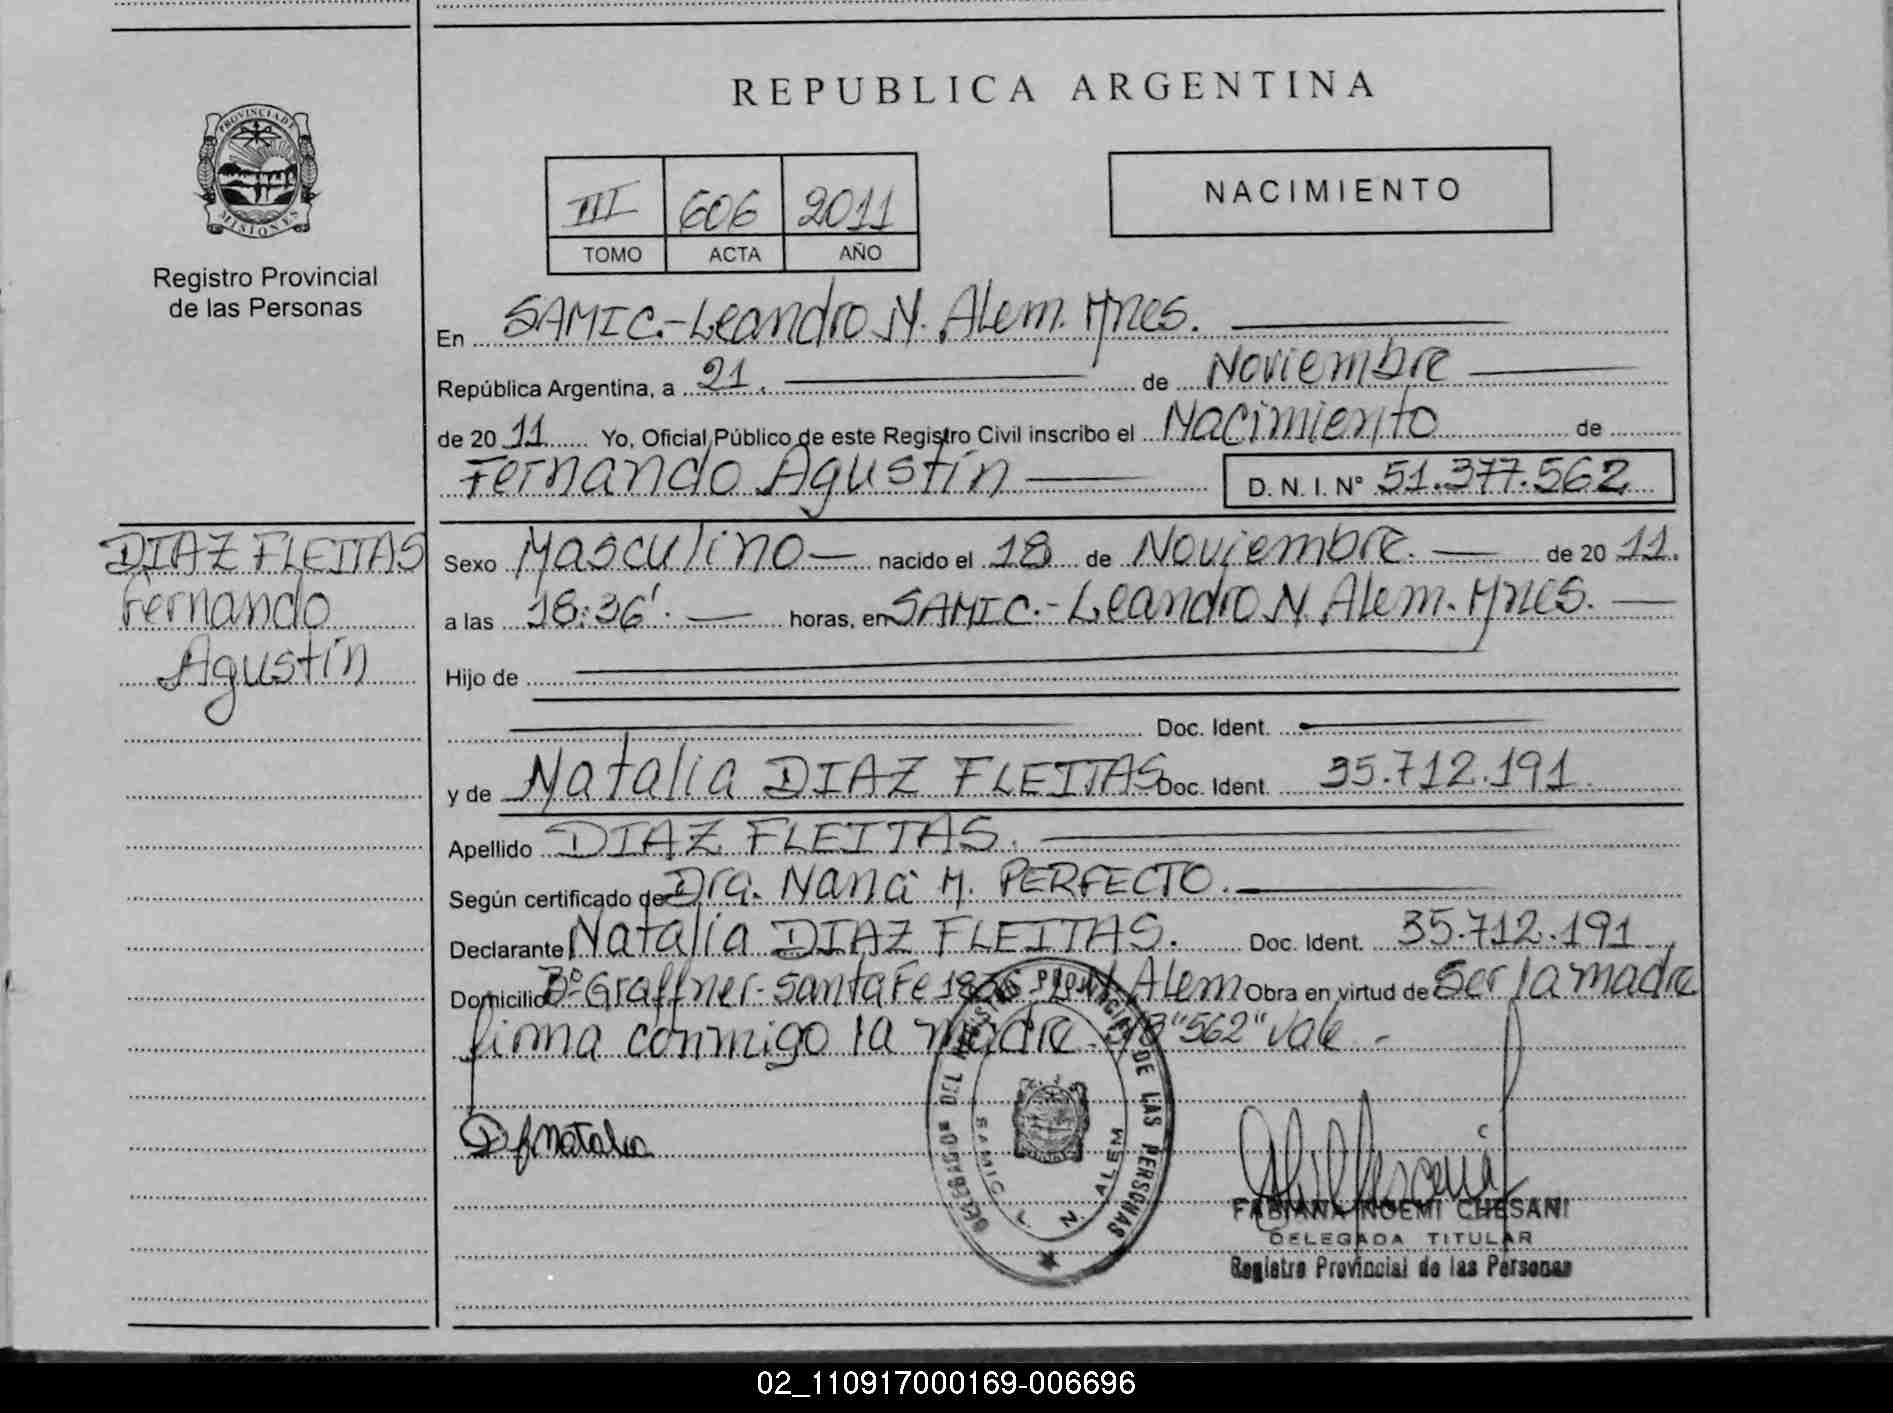 REPUBLICA ARGENTINA
PROVINCIA DE
MISIONES
Registro Provincial
de las Personas
III 606 2011
TOMO ACTA AÑO
NACIMIENTO
En SAMIC.-Leandro N. Alem. Mnes.
República Argentina, a 21. de Noviembre
de 2011 Yo, Oficial Público de este Registro Civil inscribo el Nacimiento de
Fernando Agustín D. N. I. Nº 51.377.562
DIAZ FLEITAS
Fernando
Agustín
Sexo Masculino nacido el 18 de Noviembre. de 2011.
a las 18:36'. horas, en SAMIC.- Leandro N. Alem. Mnes.
Hijo de
Doc. Ident.
y de Natalia DIAZ FLEITAS Doc. Ident. 35.712.191
Apellido DIAZ FLEITAS.
Según certificado de Dra. Nana M. PERFECTO.
Declarante Natalia DIAZ FLEITAS. Doc. Ident. 35.712.191
Domicilio Bº Graffner-Santa Fe 1836 L. N. Alem Obra en virtud de Ser la madre
firma conmigo la madre. "562" vale -
DEL REGISTRO PROVINCIAL DE LAS PERSONAS
SAMIC L N ALEM
D f Natalia
FABIANA NOEMI CHESANI
DELEGADA TITULAR
Registro Provincial de las Personas
02_110917000169-006696